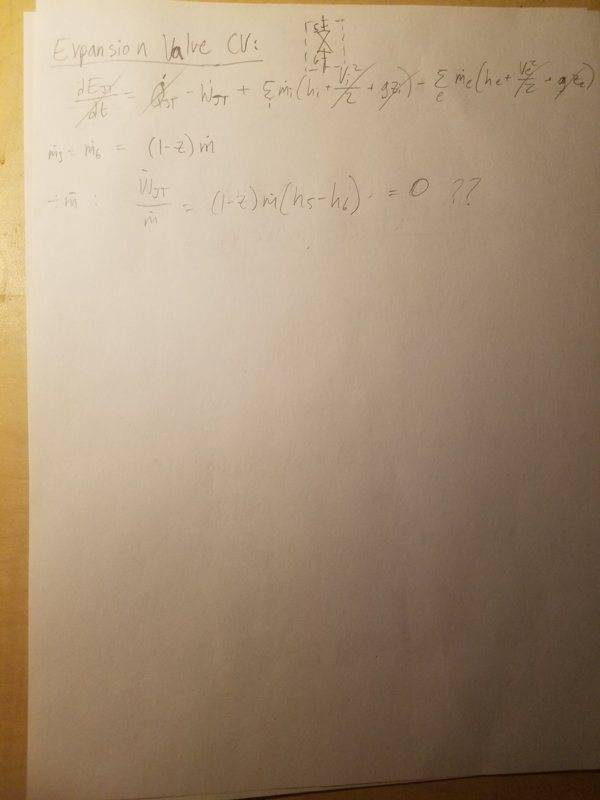 Expansion Valve CV:
5
6
dE_JT/dt = Q̇_JT - Ẇ_JT + Σ_i ṁ_i(h_i + V_i²/2 + gz_i) - Σ_e ṁ_e(h_e + V_e²/2 + gz_e)
ṁ_5 = ṁ_6 = (1-z)ṁ
÷ṁ : Ẇ_JT/ṁ = (1-z)ṁ(h_5-h_6) = 0 ??